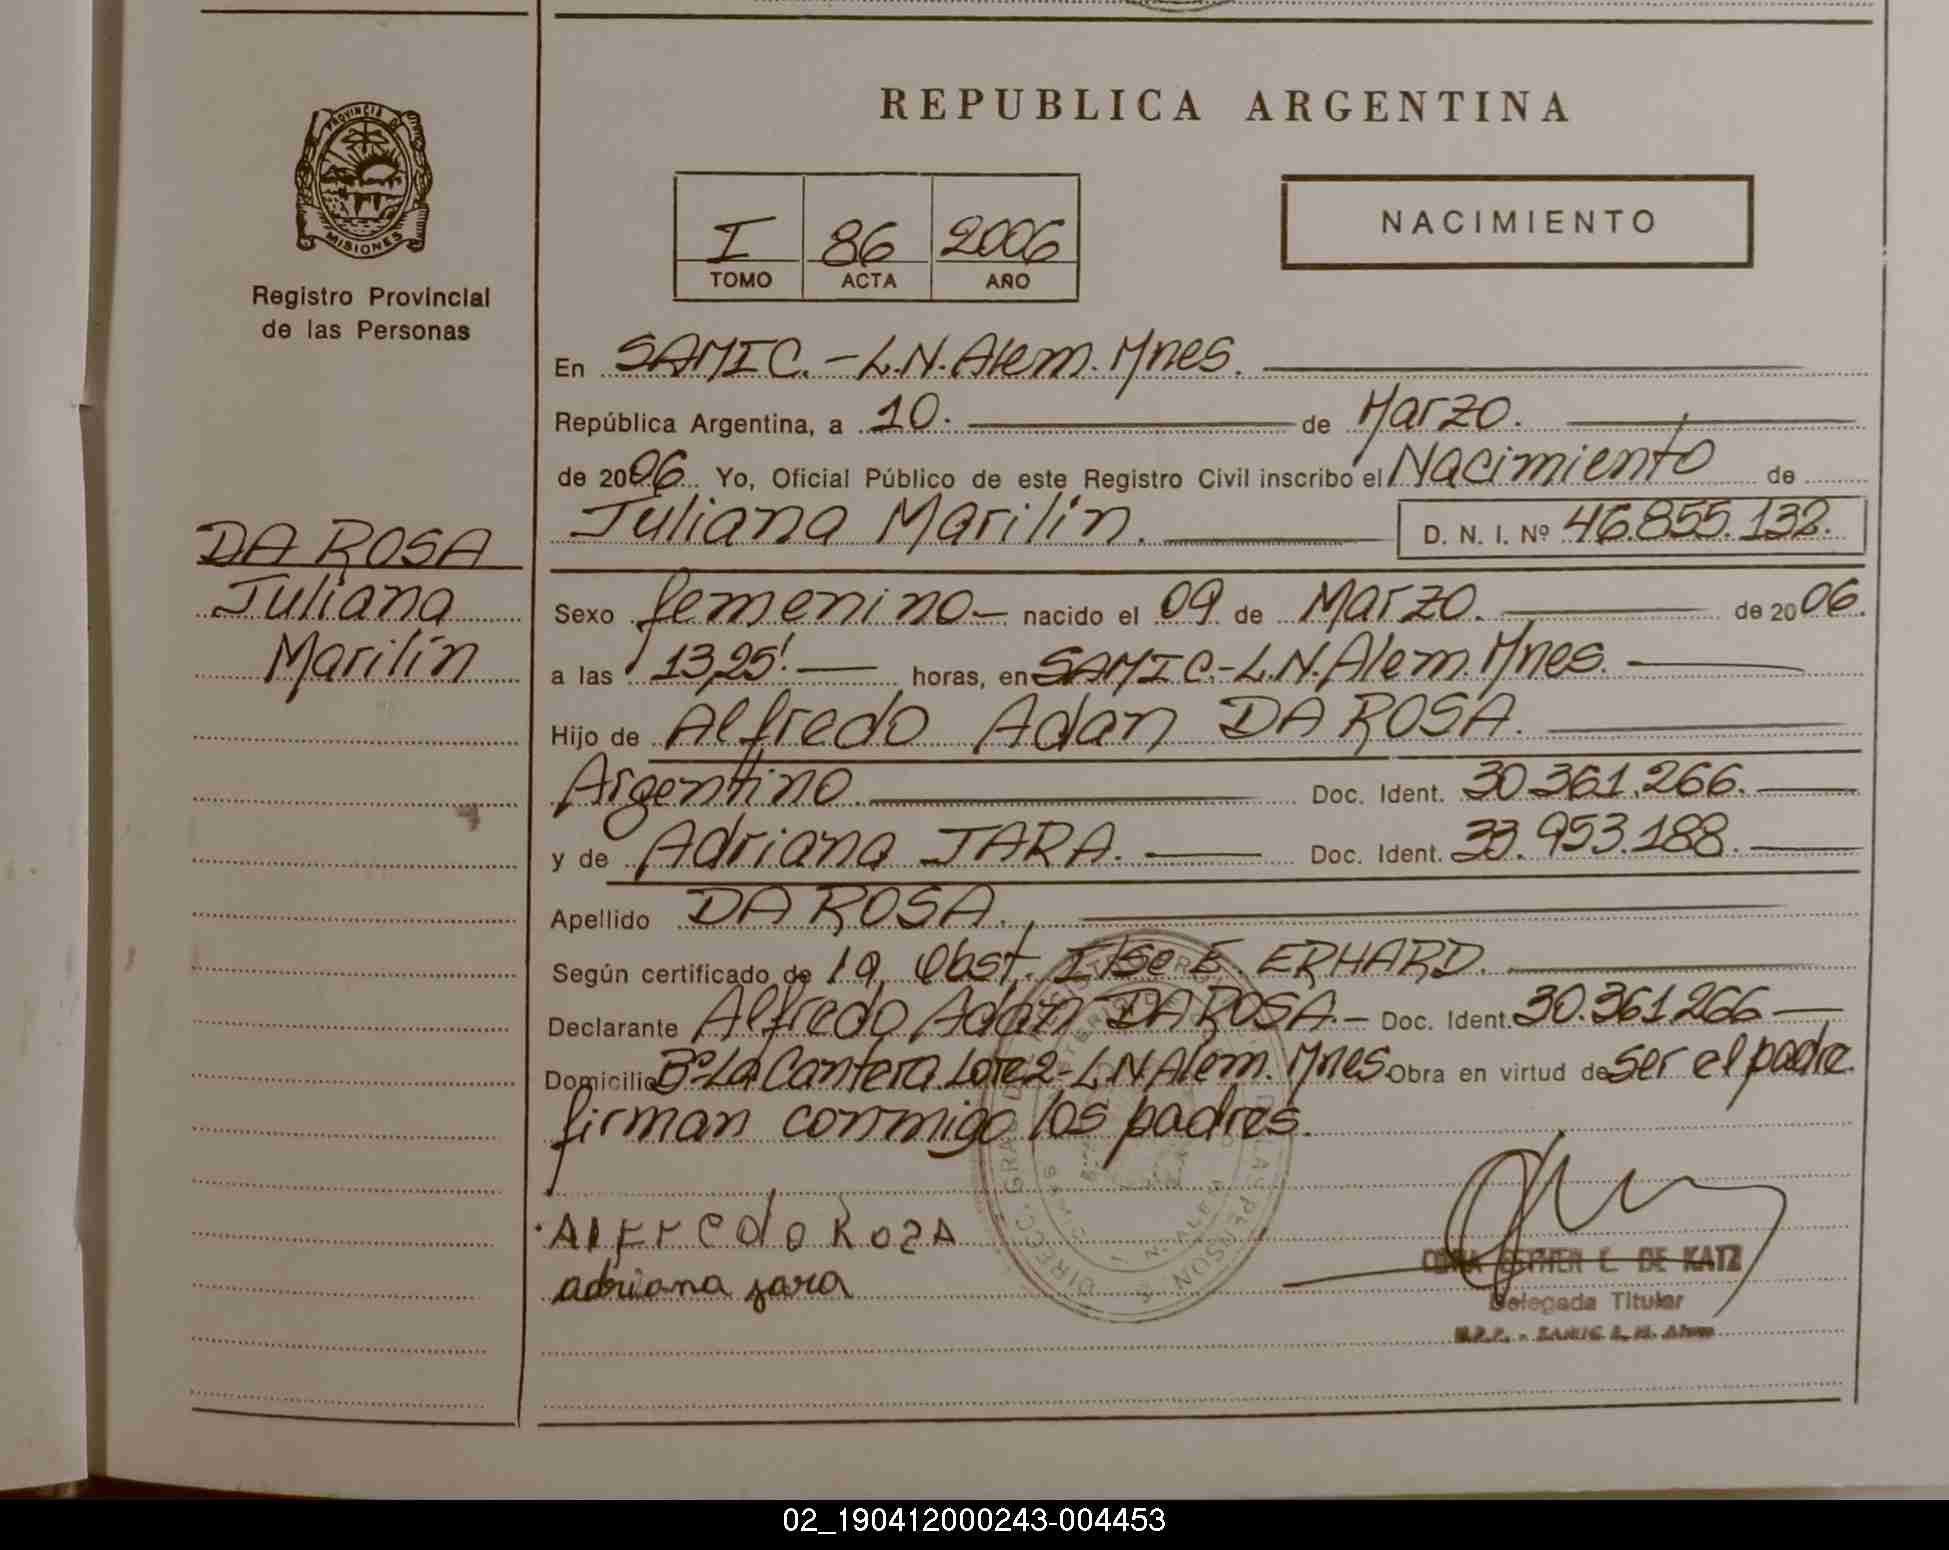 REPUBLICA ARGENTINA
PROVINCIA DE
MISIONES
Registro Provincial
de las Personas
I 86 2006
TOMO ACTA AÑO
NACIMIENTO
En SAMIC.-L.N.Alem.Mnes.
República Argentina, a 10. de Marzo.
de 2006 Yo, Oficial Público de este Registro Civil inscribo el Nacimiento de
Juliana Marilín. D. N. I. Nº 46.855.132.
DA ROSA
Juliana
Marilín
Sexo femenino- nacido el 09 de Marzo. de 2006.
a las 13,25' horas, en SAMIC.-L.N.Alem.Mnes.
Hijo de Alfredo Adan DA ROSA.
Argentino Doc. Ident. 30.361.266.
y de Adriana JARA. Doc. Ident. 33.953.188.
Apellido DA ROSA.
Según certificado de la Obst. Ilse E. ERHARD.
Declarante Alfredo Adan DA ROSA.- Doc. Ident. 30.361.266
Domicilio Bº La Cantera Lote 2-L.N.Alem.Mnes. Obra en virtud de ser el padre.
firman conmigo los padres.
AlFredo RoZA
adriana jara
ESTHER L. DE KATZ
Delegada Titular
02_190412000243-004453